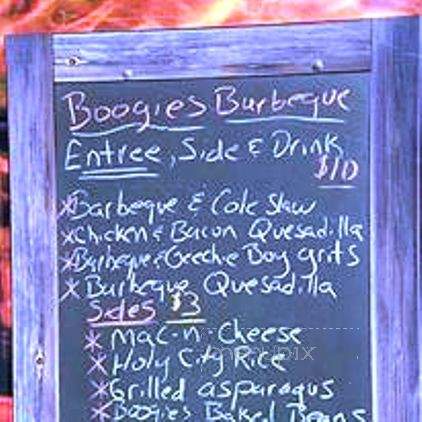 Boogies Burbeque
Entree, Side & Drink
$10
*Barbeque & Cole Slaw
*Chicken & Bacon Quesadilla
*Burbeque & Geechie Boy grits
*Burbeque Quesadilla
Sides $3
*Mac-n-Cheese
*Holy City Rice
*Grilled asparagus
*Boogies Baked Beans